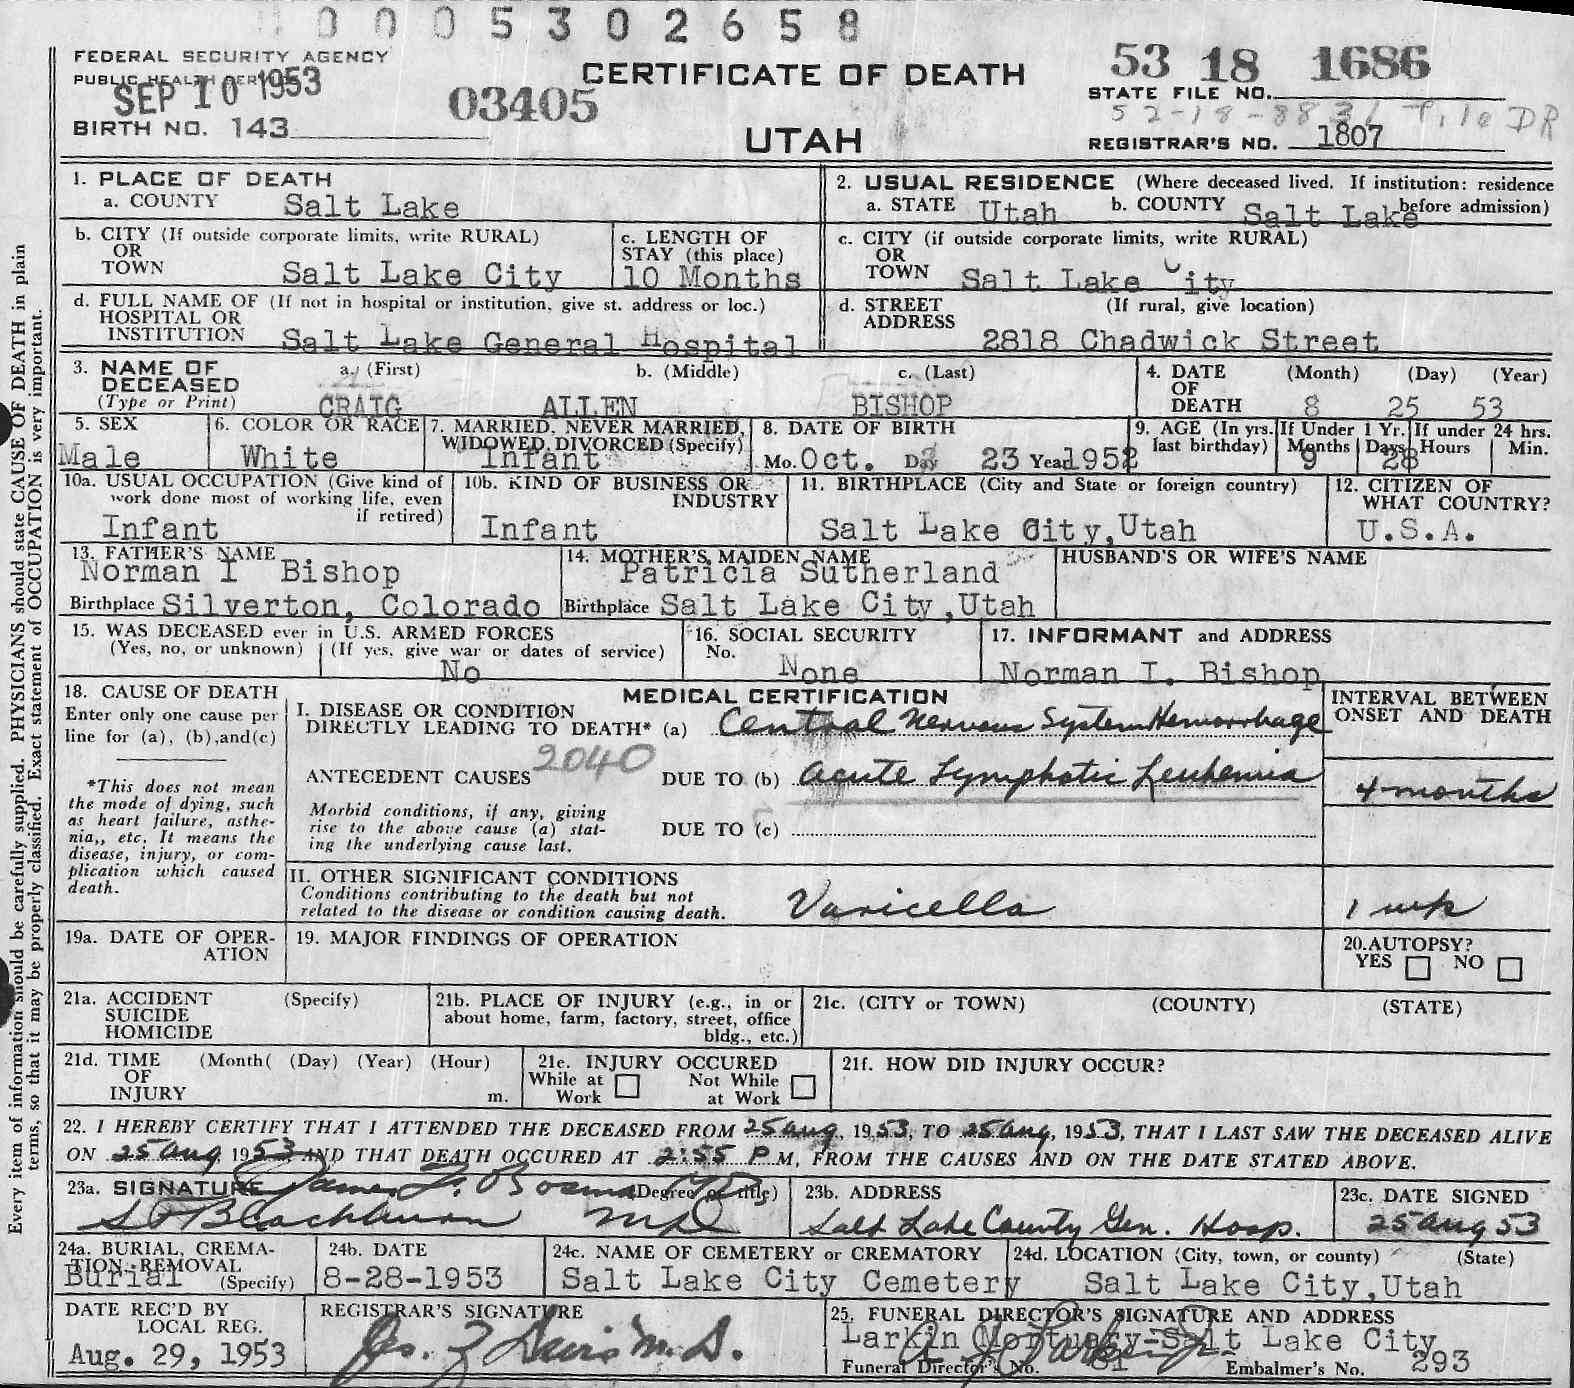 0 0 0 5 3 0 2 6 5 8
FEDERAL SECURITY AGENCY
PUBLIC HEALTH SERVICE
SEP 10 1953
CERTIFICATE OF DEATH
UTAH
03405
53 18 1686
STATE FILE NO.
52-18-8831 File DR
BIRTH NO. 143
REGISTRAR'S NO. 1807
1. PLACE OF DEATH
a. COUNTY Salt Lake
2. USUAL RESIDENCE (Where deceased lived. If institution: residence before admission)
a. STATE Utah b. COUNTY Salt Lake
b. CITY (If outside corporate limits, write RURAL)
OR
TOWN Salt Lake City
c. LENGTH OF
STAY (this place)
10 Months
c. CITY (if outside corporate limits, write RURAL)
OR
TOWN Salt Lake City
d. FULL NAME OF (If not in hospital or institution, give st. address or loc.)
HOSPITAL OR
INSTITUTION Salt Lake General Hospital
d. STREET (If rural, give location)
ADDRESS 2818 Chadwick Street
3. NAME OF
DECEASED
(Type or Print)
a. (First) b. (Middle) c. (Last)
CRAIG ALLEN BISHOP
4. DATE
OF
DEATH
(Month) (Day) (Year)
8 25 53
5. SEX
Male
6. COLOR OR RACE
White
7. MARRIED, NEVER MARRIED,
WIDOWED, DIVORCED (Specify)
Infant
8. DATE OF BIRTH
Mo. Oct. Day 23 Year 1952
9. AGE (In yrs. last birthday)
If Under 1 Yr.
Months Days
9 28
If under 24 hrs.
Hours Min.
10a. USUAL OCCUPATION (Give kind of
work done most of working life, even
if retired)
Infant
10b. KIND OF BUSINESS OR
INDUSTRY
Infant
11. BIRTHPLACE (City and State or foreign country)
Salt Lake City,Utah
12. CITIZEN OF
WHAT COUNTRY?
U.S.A.
13. FATHER'S NAME
Norman I Bishop
Birthplace Silverton, Colorado
14. MOTHER'S MAIDEN NAME
Patricia Sutherland
Birthplace Salt Lake City,Utah
HUSBAND'S OR WIFE'S NAME
15. WAS DECEASED ever in U.S. ARMED FORCES
(Yes, no, or unknown) (If yes, give war or dates of service)
No
16. SOCIAL SECURITY
No.
None
17. INFORMANT and ADDRESS
Norman I. Bishop
18. CAUSE OF DEATH
Enter only one cause per
line for (a), (b), and (c)
*This does not mean
the mode of dying, such
as heart failure, asthe-
nia,, etc. It means the
disease, injury, or com-
plication which caused
death.
MEDICAL CERTIFICATION
I. DISEASE OR CONDITION
DIRECTLY LEADING TO DEATH* (a) Central Nervous System Hemorrhage
2040
ANTECEDENT CAUSES DUE TO (b) Acute Lymphatic Leukemia
Morbid conditions, if any, giving
rise to the above cause (a) stat-
ing the underlying cause last.
DUE TO (c)
INTERVAL BETWEEN
ONSET AND DEATH
4 months
II. OTHER SIGNIFICANT CONDITIONS
Conditions contributing to the death but not
related to the disease or condition causing death.
Varicella
1 wk
19a. DATE OF OPER-
ATION
19. MAJOR FINDINGS OF OPERATION
20. AUTOPSY?
YES NO
21a. ACCIDENT (Specify)
SUICIDE
HOMICIDE
21b. PLACE OF INJURY (e.g., in or
about home, farm, factory, street, office
bldg., etc.)
21c. (CITY or TOWN) (COUNTY) (STATE)
21d. TIME (Month( (Day) (Year) (Hour)
OF
INJURY m.
21e. INJURY OCCURED
While at Work Not While at Work
21f. HOW DID INJURY OCCUR?
22. I HEREBY CERTIFY THAT I ATTENDED THE DECEASED FROM 25 Aug, 1953, TO 25 Aug, 1953, THAT I LAST SAW THE DECEASED ALIVE
ON 25 Aug 1953 AND THAT DEATH OCCURED AT 2:55 P M, FROM THE CAUSES AND ON THE DATE STATED ABOVE.
23a. SIGNATURE (Degree or title)
James F. Bosma MD
S O Blackburn MD
23b. ADDRESS
Salt Lake County Gen. Hosp.
23c. DATE SIGNED
25 Aug 53
24a. BURIAL, CREMA-
TION, REMOVAL
(Specify)
Burial
24b. DATE
8-28-1953
24c. NAME OF CEMETERY or CREMATORY
Salt Lake City Cemetery
24d. LOCATION (City, town, or county) (State)
Salt Lake City,Utah
DATE REC'D BY
LOCAL REG.
Aug. 29, 1953
REGISTRAR'S SIGNATURE
Jos. Z Davis M.D.
25. FUNERAL DIRECTOR'S SIGNATURE AND ADDRESS
Larkin Mortuary-Salt Lake City
Funeral Director's No. 81 Embalmer's No. 293
Every item of information should be carefully supplied. PHYSICIANS should state CAUSE OF DEATH in plain
terms, so that it may be properly classified. Exact statement of OCCUPATION is very important.